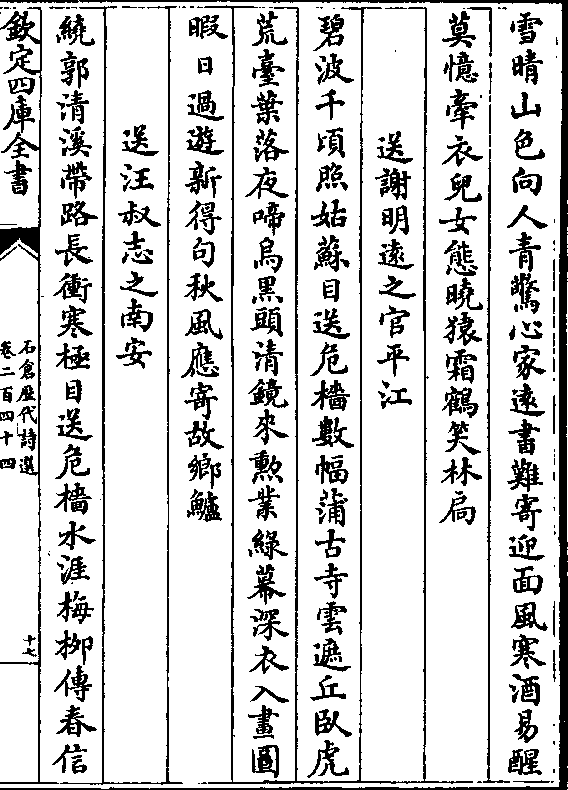 雪晴山色向人青驚心家遠書難寄迎面風寒酒易醒
莫憶牽衣兒女態曉猿霜鶴笑林扃
送謝明遠之官平江
碧波千頃照姑蘇目送危檣數幅蒲古寺雲遮丘臥虎
荒臺葉落夜啼烏黑頭清鏡來勲業綠幕深衣入畫圖
暇日過遊新得句秋風應寄故鄉鱸
送汪叔志之南安
繞郭清溪帶路長衝寒極目送危檣水涯梅栁傳春信
欽定四庫全書
石倉歴代詩選
卷二百四十四
十七